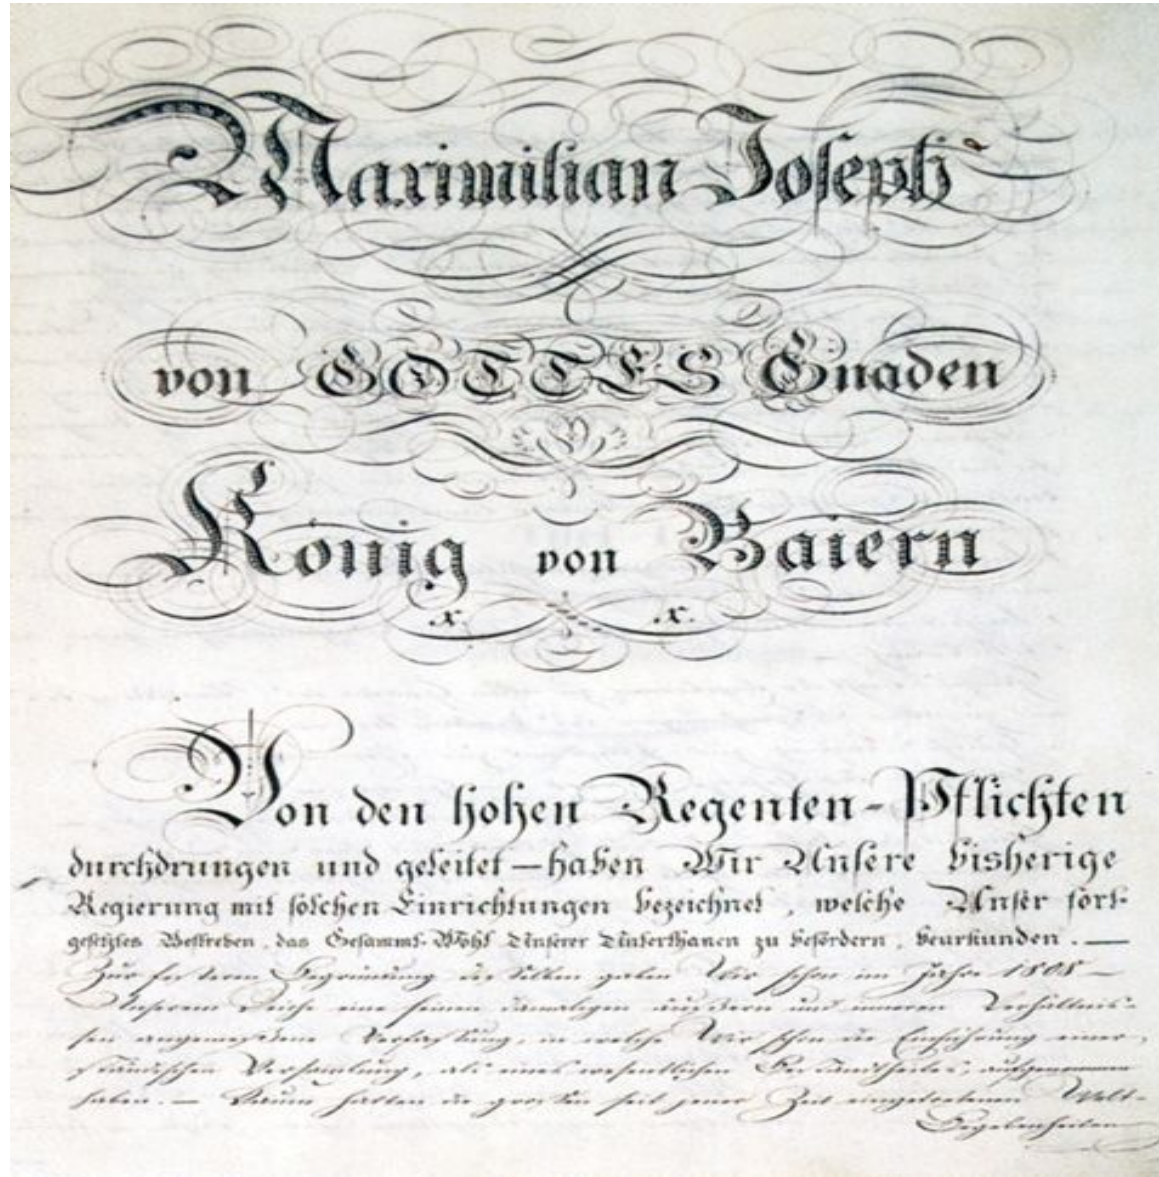 Maximilian Joseph
von GOTTES Gnaden
König von Baiern
x. x.
Von den hohen Regenten-Pflichten
durchdrungen und geleitet — haben Wir Unsere bisherige
Regierung mit solchen Einrichtungen bezeichnet, welche Unser fort-
gesetztes Bestreben, das Gesammt-Wohl Unserer Unterthanen zu befördern, beurkunden. —
Zur festern Begründung desselben gaben Wir schon im Jahre 1808 —
Unserem Reiche eine seinen damaligen äußern und inneren Verhältnis-
sen angemessene Verfassung, in welche Wir schon die Einführung einer
ständischen Versamlung, als eines wesentlichen Bestandtheiles, aufgenommen
haben. — Kaum hatten die großen seit jener Zeit eingetretenen Welt-
Begebenheiten